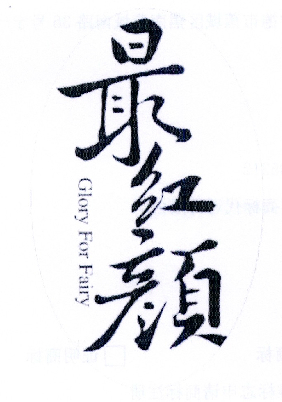 最红颜
Glory For Fairy